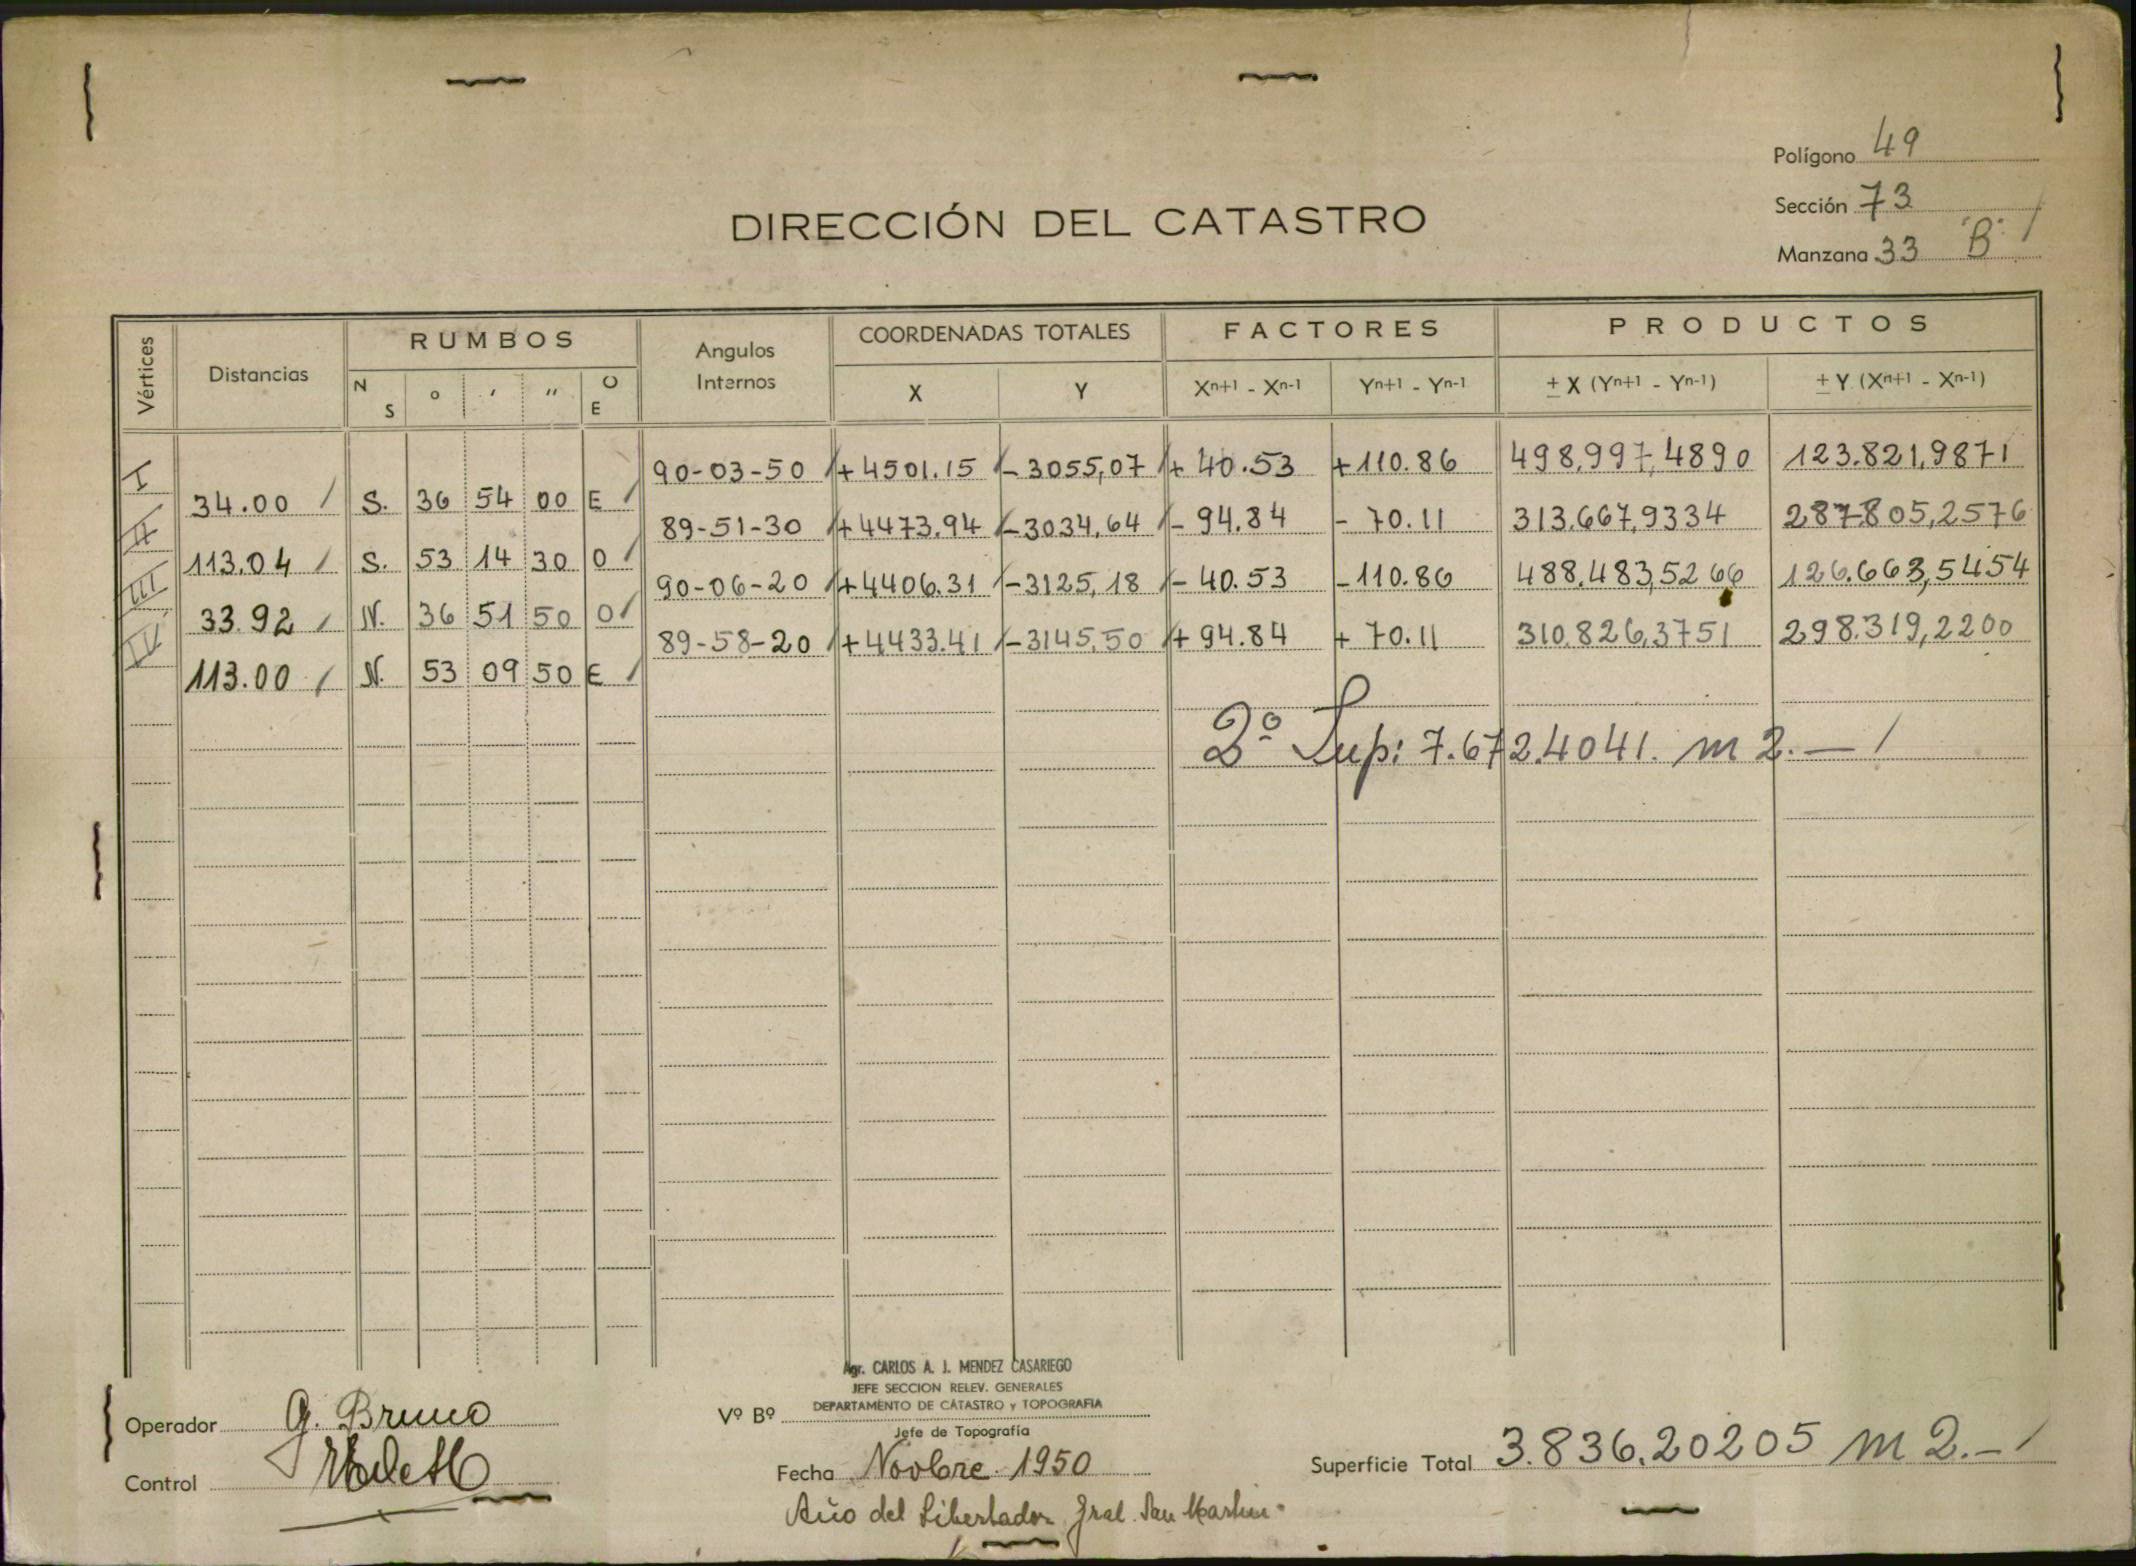 Polígono 49
Sección 73
DIRECCIÓN DEL CATASTRO
Manzana 33 "B" /
Vértices Distancias RUMBOS Angulos Internos COORDENADAS TOTALES FACTORES PRODUCTOS
N S o ' " O E X Y Xn+1 - Xn-1 Yn+1 - Yn-1 ± X (Yn+1 - Yn-1) ± Y (Xn+1 - Xn-1)
I 90-03-50 /+4501.15 /-3055,07 /+ 40.53 +110.86 498,997,4890 123.821,9871
34.00 / S. 36 54 00 E /
II 89-51-30 /+4473.94 /-3034,64 /- 94.84 - 70.11 313.667,9334 287.805,2576
113.04 / S. 53 14 30 O /
III 90-06-20 /+4406.31 /-3125,18 /- 40.53 -110.86 488.483,5266 126.663,5454
33.92 / N. 36 51 50 O /
IV 89-58-20 /+4433.41 /-3145,50 /+ 94.84 + 70.11 310.826,3751 298.319,2200
113.00 / N. 53 09 50 E /
2º Sup: 7.672.4041. m2.— /
Agr. CARLOS A. J. MENDEZ CASARIEGO
JEFE SECCION RELEV. GENERALES
DEPARTAMENTO DE CATASTRO y TOPOGRAFIA
Operador G. Bruno
Vº Bº
Jefe de Topografía
Control
Fecha Novbre. 1950
Superficie Total 3.836.20205 m2.- /
Año del Libertador Gral. San Martin